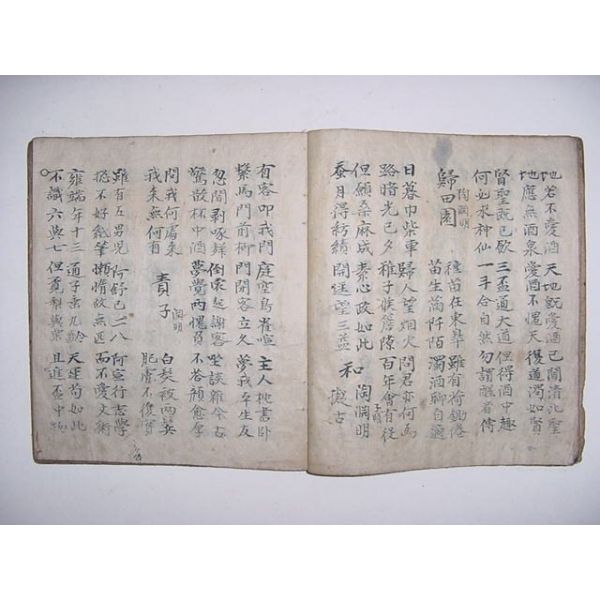 地若不愛酒 天地旣愛酒 已聞清比聖
地應無酒泉 愛酒不愧天 復道濁如賢
賢聖旣已飮 三盃通大道 但得酒中趣
何必求神仙 一斗合自然 勿謂醒者傳
歸田園 陶淵明 種苗在東皐 雖有荷鋤倦
苗生滿阡陌 濁酒聊自適
日暮巾柴車 歸人望烟火 問君亦何爲
路暗光已夕 稚子候簷隙 百年會有役
但願桑麻成 素心政如此 和陶淵明
蚕月得紡績 開逕望三益 擬古
有客叩我門 庭空鳥雀喧 主人枕書臥
繫馬門前柳 門閉客立久 夢我平生友
忽聞剝啄聲 倒裳起謝客 坐談雜今古
驚散杯中酒 夢覺兩愧負 不答顔愈厚
問我何處來 責子 淵明 白髮被兩鬢
我來無何有 肥膚不復實
雖有五男兒 阿舒已二八 阿宣行志學
摠不好紙筆 懶惰故無匹 而不愛文術
雍端年十三 通子垂九齡 天運苟如此
不識六與七 但覓梨與栗 且進盃中物